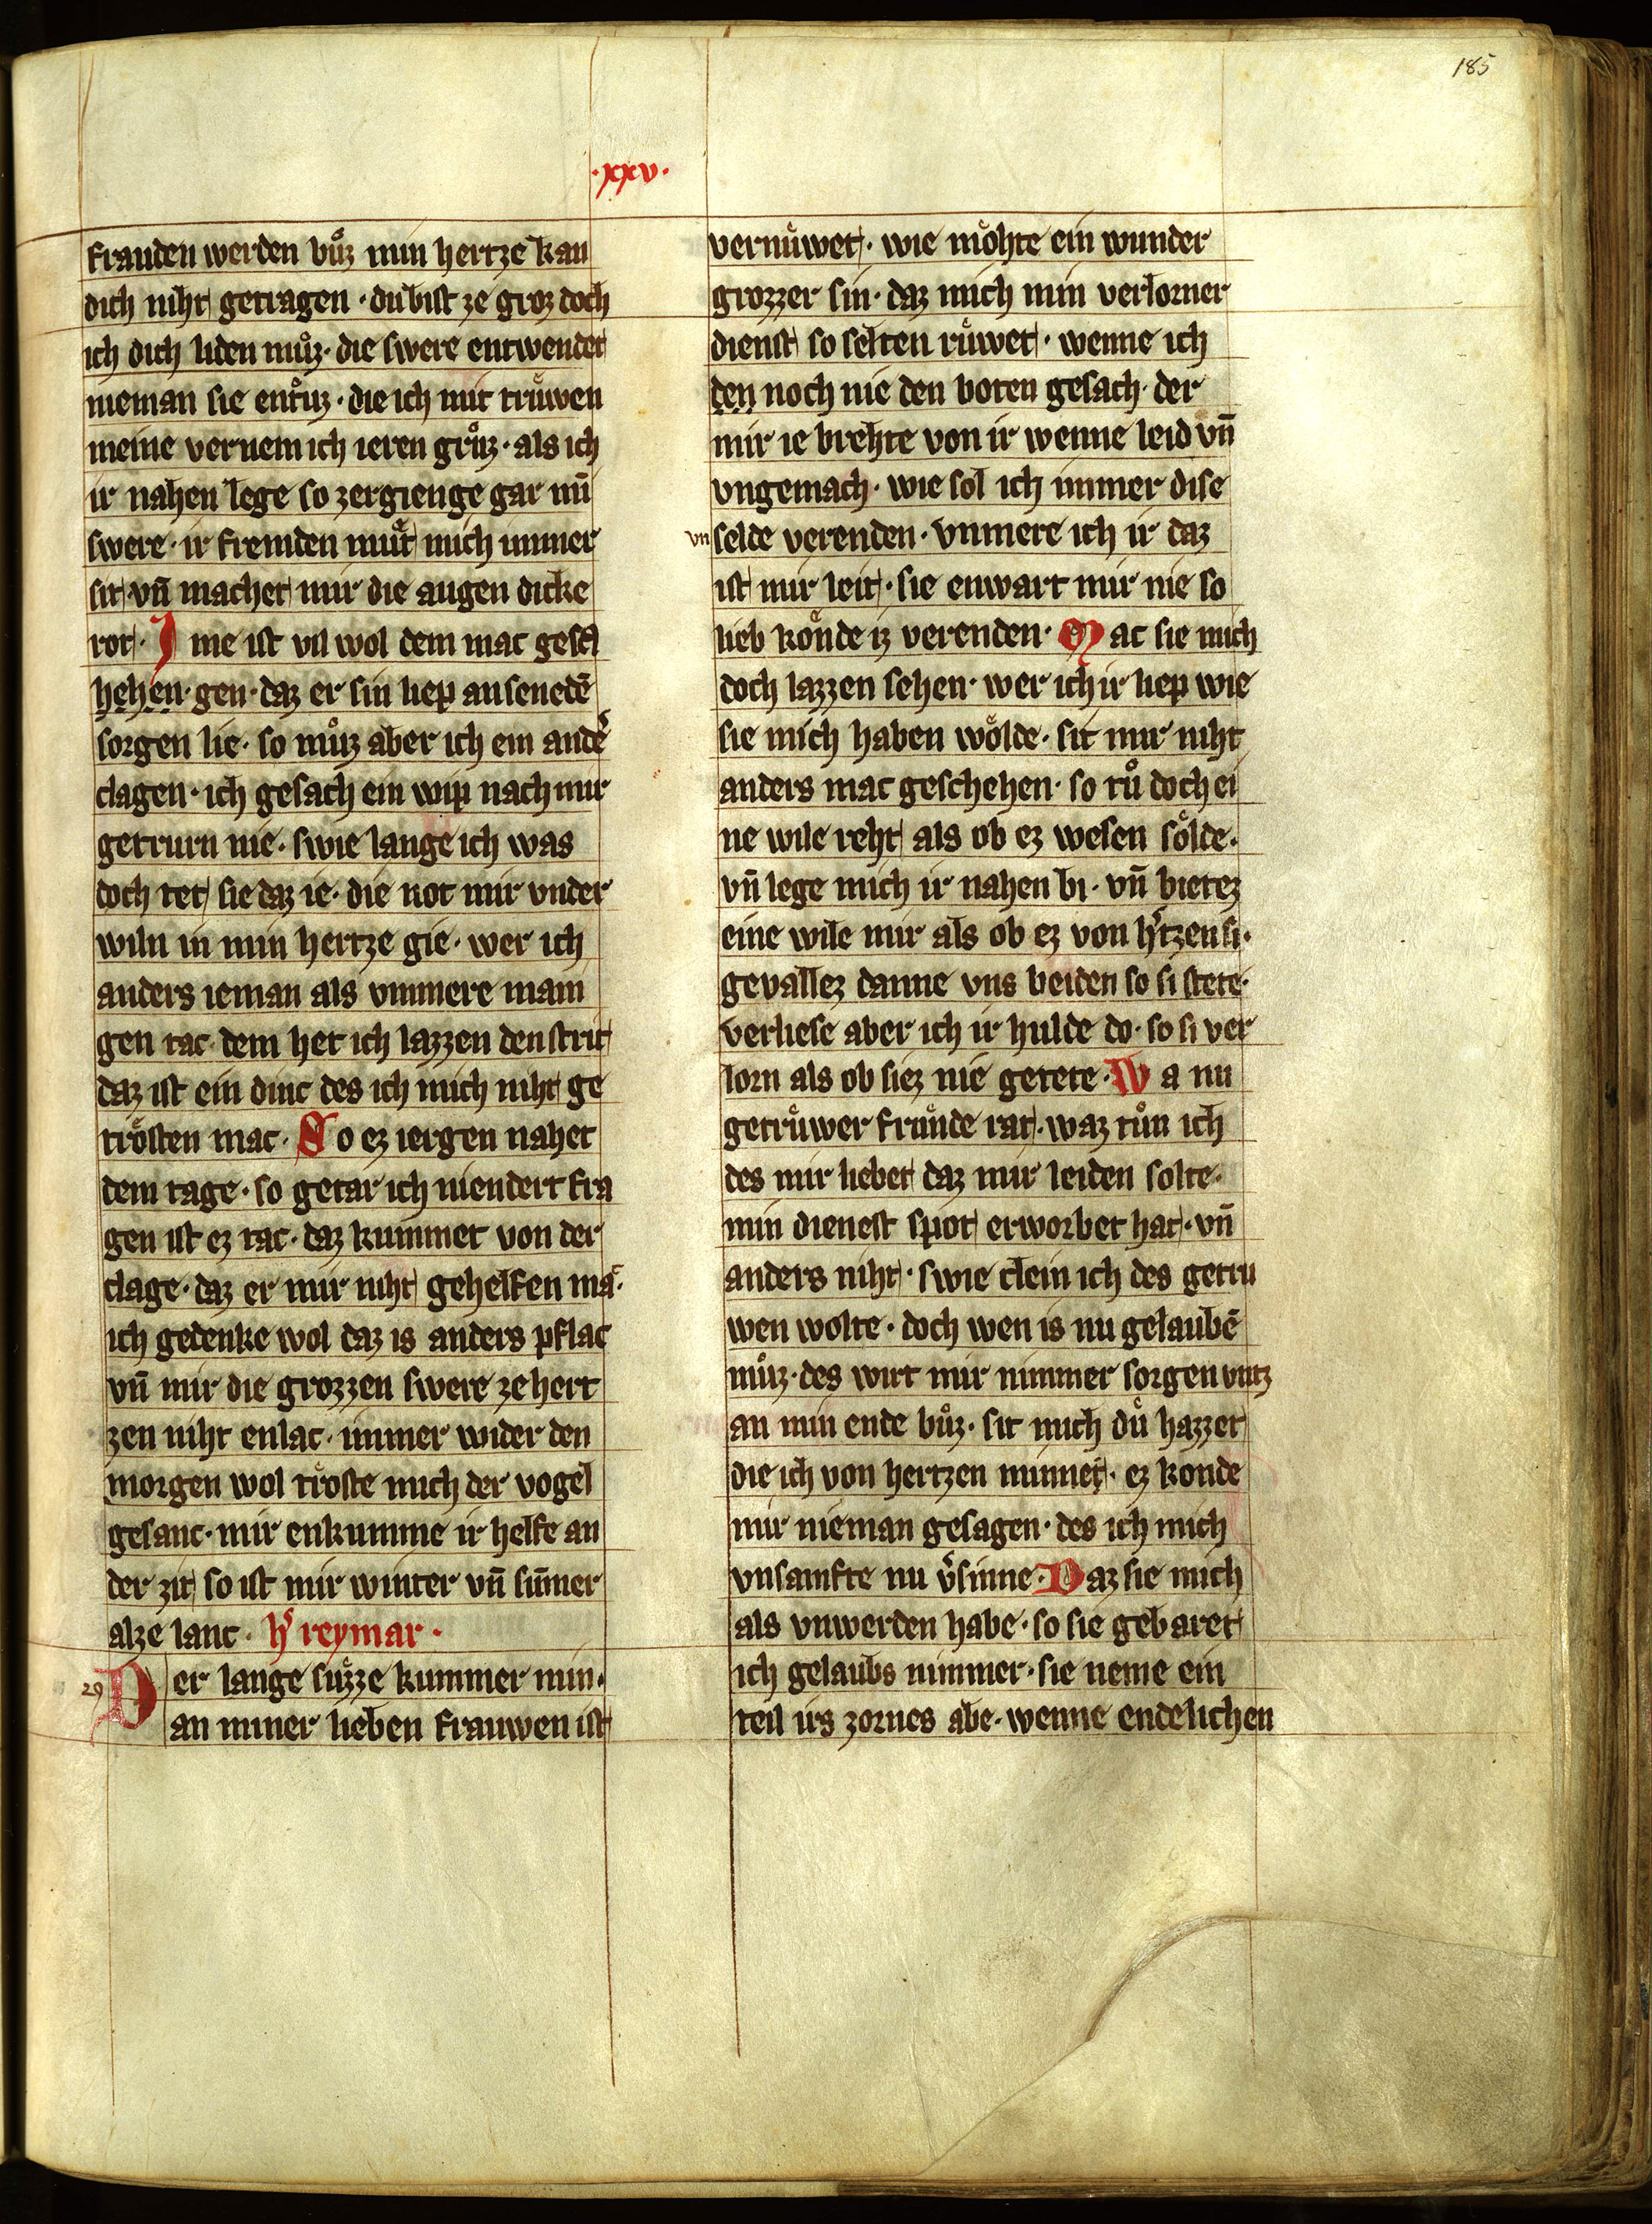 185
·xxv·
frauden werden bůz min hertze kan
dich niht getragen · du bist ze groz doch
ich dich liden můz · die swere entwendet
nieman sie entůz · die ich mit trüwen
meine vernem ich ieren grůz · als ich
ir nahen lege so zergienge gar mī
swere · ir fremden müt mich immer
sit vn̄ machet mir die augen dicke
rot · Ime ist vil wol dem mac gesch
hehen · gen · daz er sin liep an senedē
sorgen lie · so můz aber ich ein andẽ
clagen · ich gesach ein wip nach mir
getrurn nie · swie lange ich was
doch tet sie daz ie · die not mir vnder
wiln in min hertze gie · wer ich
anders ieman als vnmere mani
gen tac · dem het ich lazzen den strit
daz ist ein dinc des ich mich niht ge
trösten mac · So ez iergen nahet
dem tage · so getar ich niendert fra
gen ist ez tac · daz kummet von der
clage · daz er mir niht gehelfen maͨ ·
ich gedenke wol daz is anders pflac
vn̄ mir die grozzen swere ze hert
zen niht enlac · immer wider den
morgen wol tröste mich der vogel
gesanc · mir enkumme ir helfe an
der zit so ist mir winter vn̄ sūmer
alze lanc · h̾ reymar ·
29 Der lange süzze kummer min ·
an miner lieben frauwen ist
vernüwet · wie möhte ein wunder
grozzer sin · daz mich min verlorner
dienst so selten rüwet · wenne ich
den noch nie den boten gesach · der
mir ie brehte von ir wenne leid vn̄
vngemach · wie sol ich immer dise
vn selde verenden · vnmere ich ir daz
ist mir leit · sie enwart mir nie so
lieb könde iz verenden · Mac sie mich
doch lazzen sehen · wer ich ir liep wie
sie mich haben wölde · sit mir niht
anders mac geschehen · so tů doch ei
ne wile reht als ob ez wesen sölde ·
vn̄ lege mich ir nahen bi · vn̄ bietez
eine wile mir als ob ez von h̾tzen si ·
gevallez danne vns beiden so si stete ·
verliese aber ich ir hulde do · so si ver
lorn als ob siez nie getete · Wa nu
getrüwer fründe rat · waz tůn ich
des mir liebet daz mir leiden solte ·
min dienest spot erworbet hat · vn̄
anders niht · swie clein ich des getru
wen wolte · doch wen is nu gelaubē
můz · des wirt mir nimmer sorgen vntz
an min ende bůz · sit mich dü hazzet
die ich von hertzen minnet · ez konde
mir nieman gesagen · des ich mich
vnsamfte nu v̾sinne · Daz sie mich
als vnwerden habe · so sie gebaret
ich gelaubs nimmer · sie neme ein
teil irs zornes abe · wenne endelichen